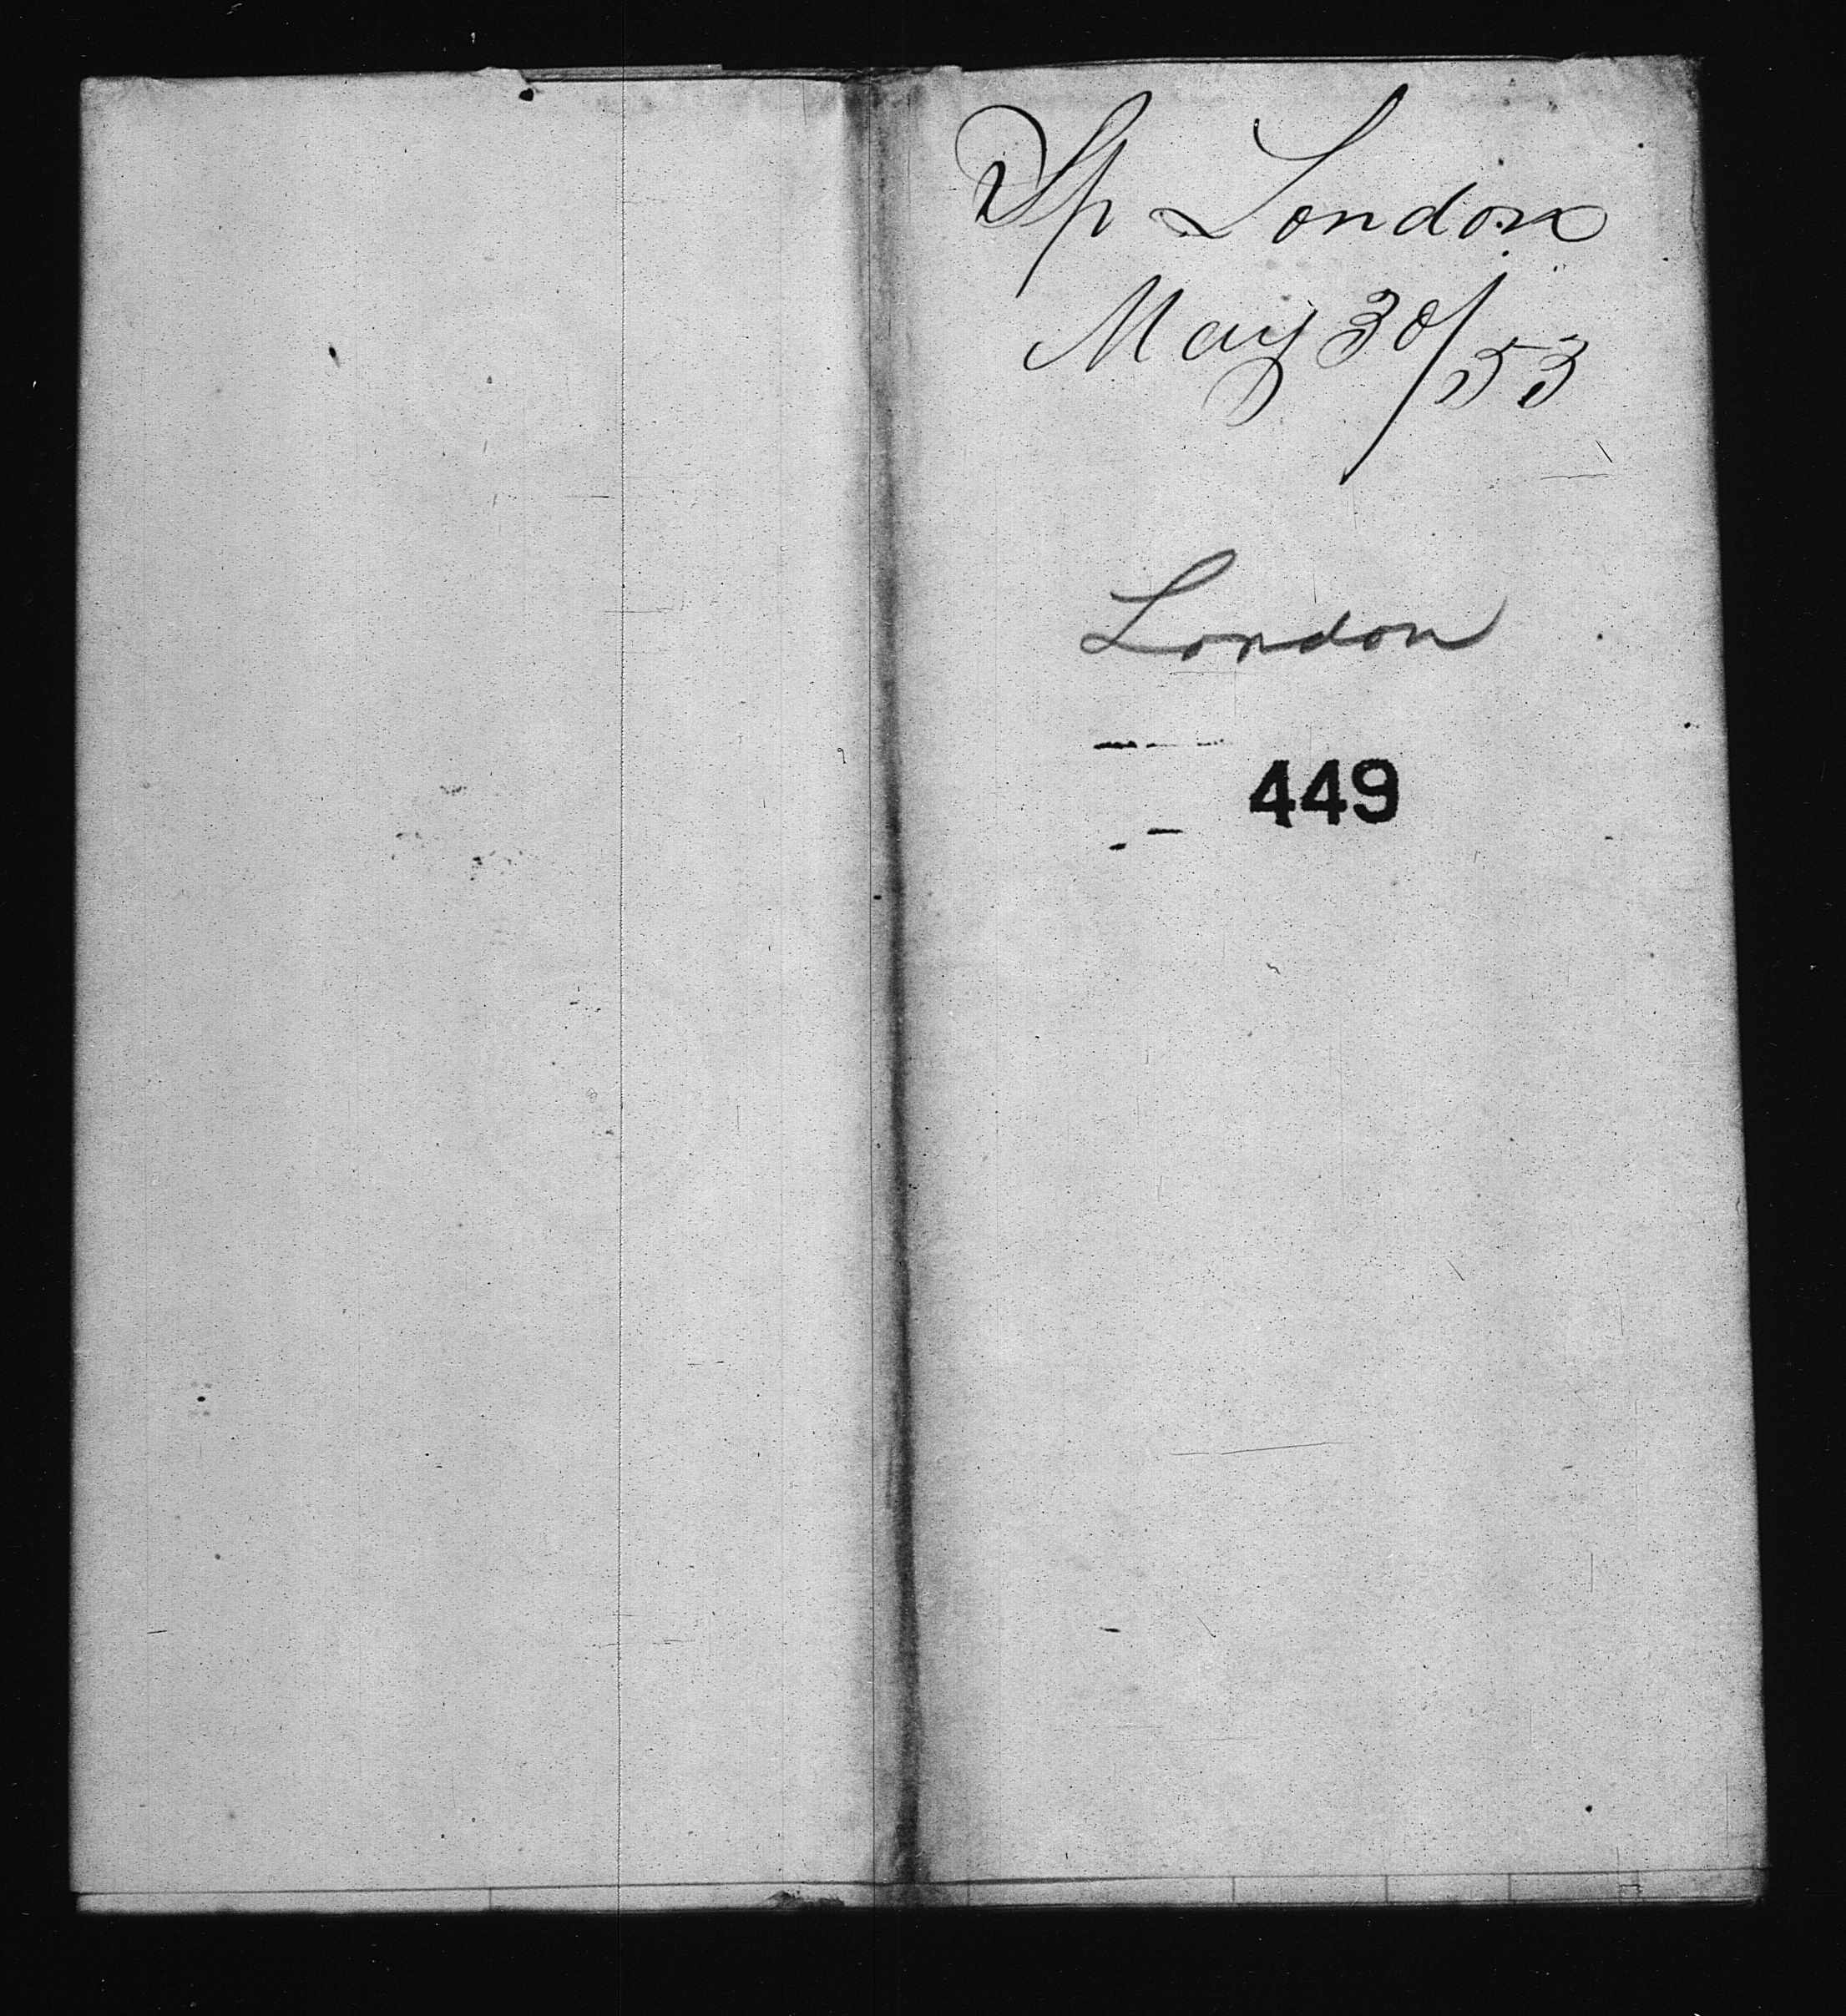 Sp London
May 30/53
London
449